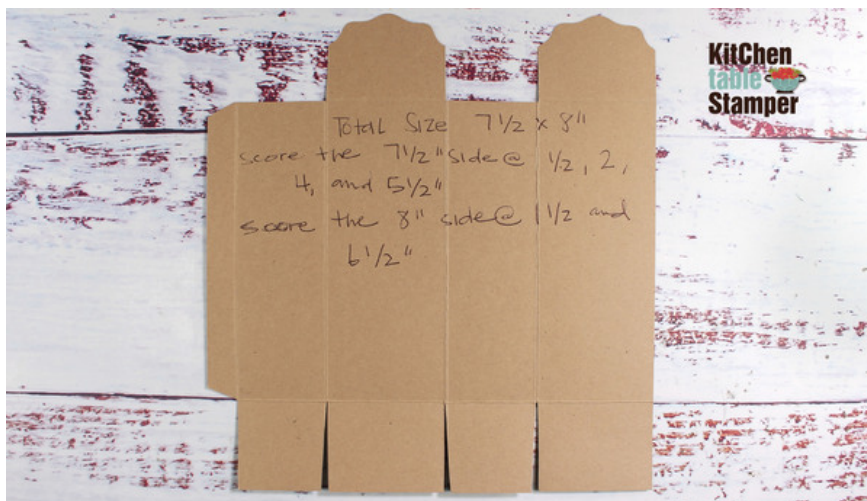 KitChen
table
Stamper
Total Size 7 1/2 x 8"
score the 7 1/2" side @ 1/2, 2,
4, and 5 1/2"
score the 8" side @ 1 1/2 and
6 1/2"